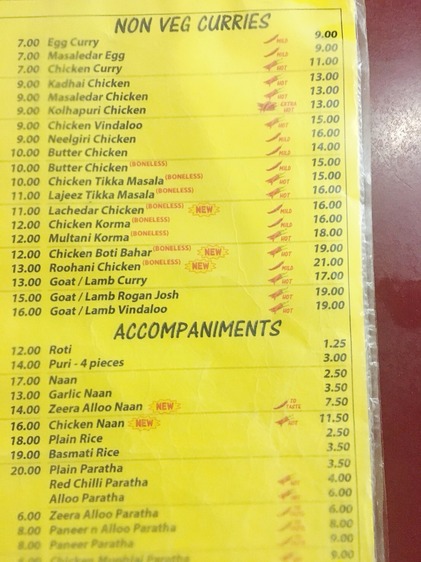 NON VEG CURRIES
7.00 Egg Curry MILD 9.00
7.00 Masaledar Egg MILD 9.00
7.00 Chicken Curry HOT 11.00
9.00 Kadhai Chicken HOT 13.00
9.00 Masaledar Chicken HOT 13.00
9.00 Kolhapuri Chicken EXTRA HOT 13.00
9.00 Chicken Vindaloo HOT 15.00
9.00 Neelgiri Chicken MILD 16.00
10.00 Butter Chicken MILD 14.00
10.00 Butter Chicken (BONELESS) MILD 15.00
10.00 Chicken Tikka Masala (BONELESS) HOT 15.00
11.00 Lajeez Tikka Masala (BONELESS) HOT 16.00
11.00 Lachedar Chicken (BONELESS) NEW MILD 16.00
12.00 Chicken Korma (BONELESS) MILD 16.00
12.00 Multani Korma (BONELESS) HOT 18.00
12.00 Chicken Boti Bahar (BONELESS) NEW HOT 19.00
13.00 Roohani Chicken (BONELESS) NEW MILD 21.00
13.00 Goat / Lamb Curry HOT 17.00
15.00 Goat / Lamb Rogan Josh HOT 19.00
16.00 Goat / Lamb Vindaloo HOT 19.00
ACCOMPANIMENTS
12.00 Roti 1.25
14.00 Puri - 4 pieces 3.00
17.00 Naan 2.50
13.00 Garlic Naan 3.50
14.00 Zeera Alloo Naan NEW TO TASTE 7.50
16.00 Chicken Naan NEW HOT 11.50
18.00 Plain Rice 2.50
19.00 Basmati Rice 3.50
20.00 Plain Paratha 3.50
Red Chilli Paratha 4.00
Alloo Paratha 6.00
6.00 Zeera Alloo Paratha 6.00
8.00 Paneer n Alloo Paratha 8.00
8.00 Paneer Paratha 9.00
Chicken Mughlai Paratha 9.00